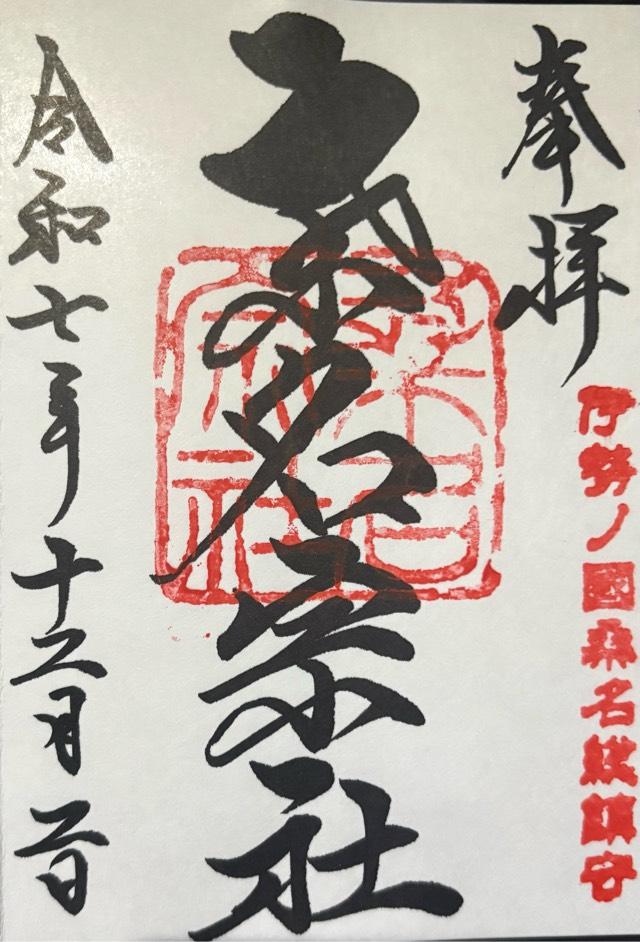 奉拝
伊勢ノ國桑名総鎮守
桑名宗社
桑名宗社
令和七年十二月二日